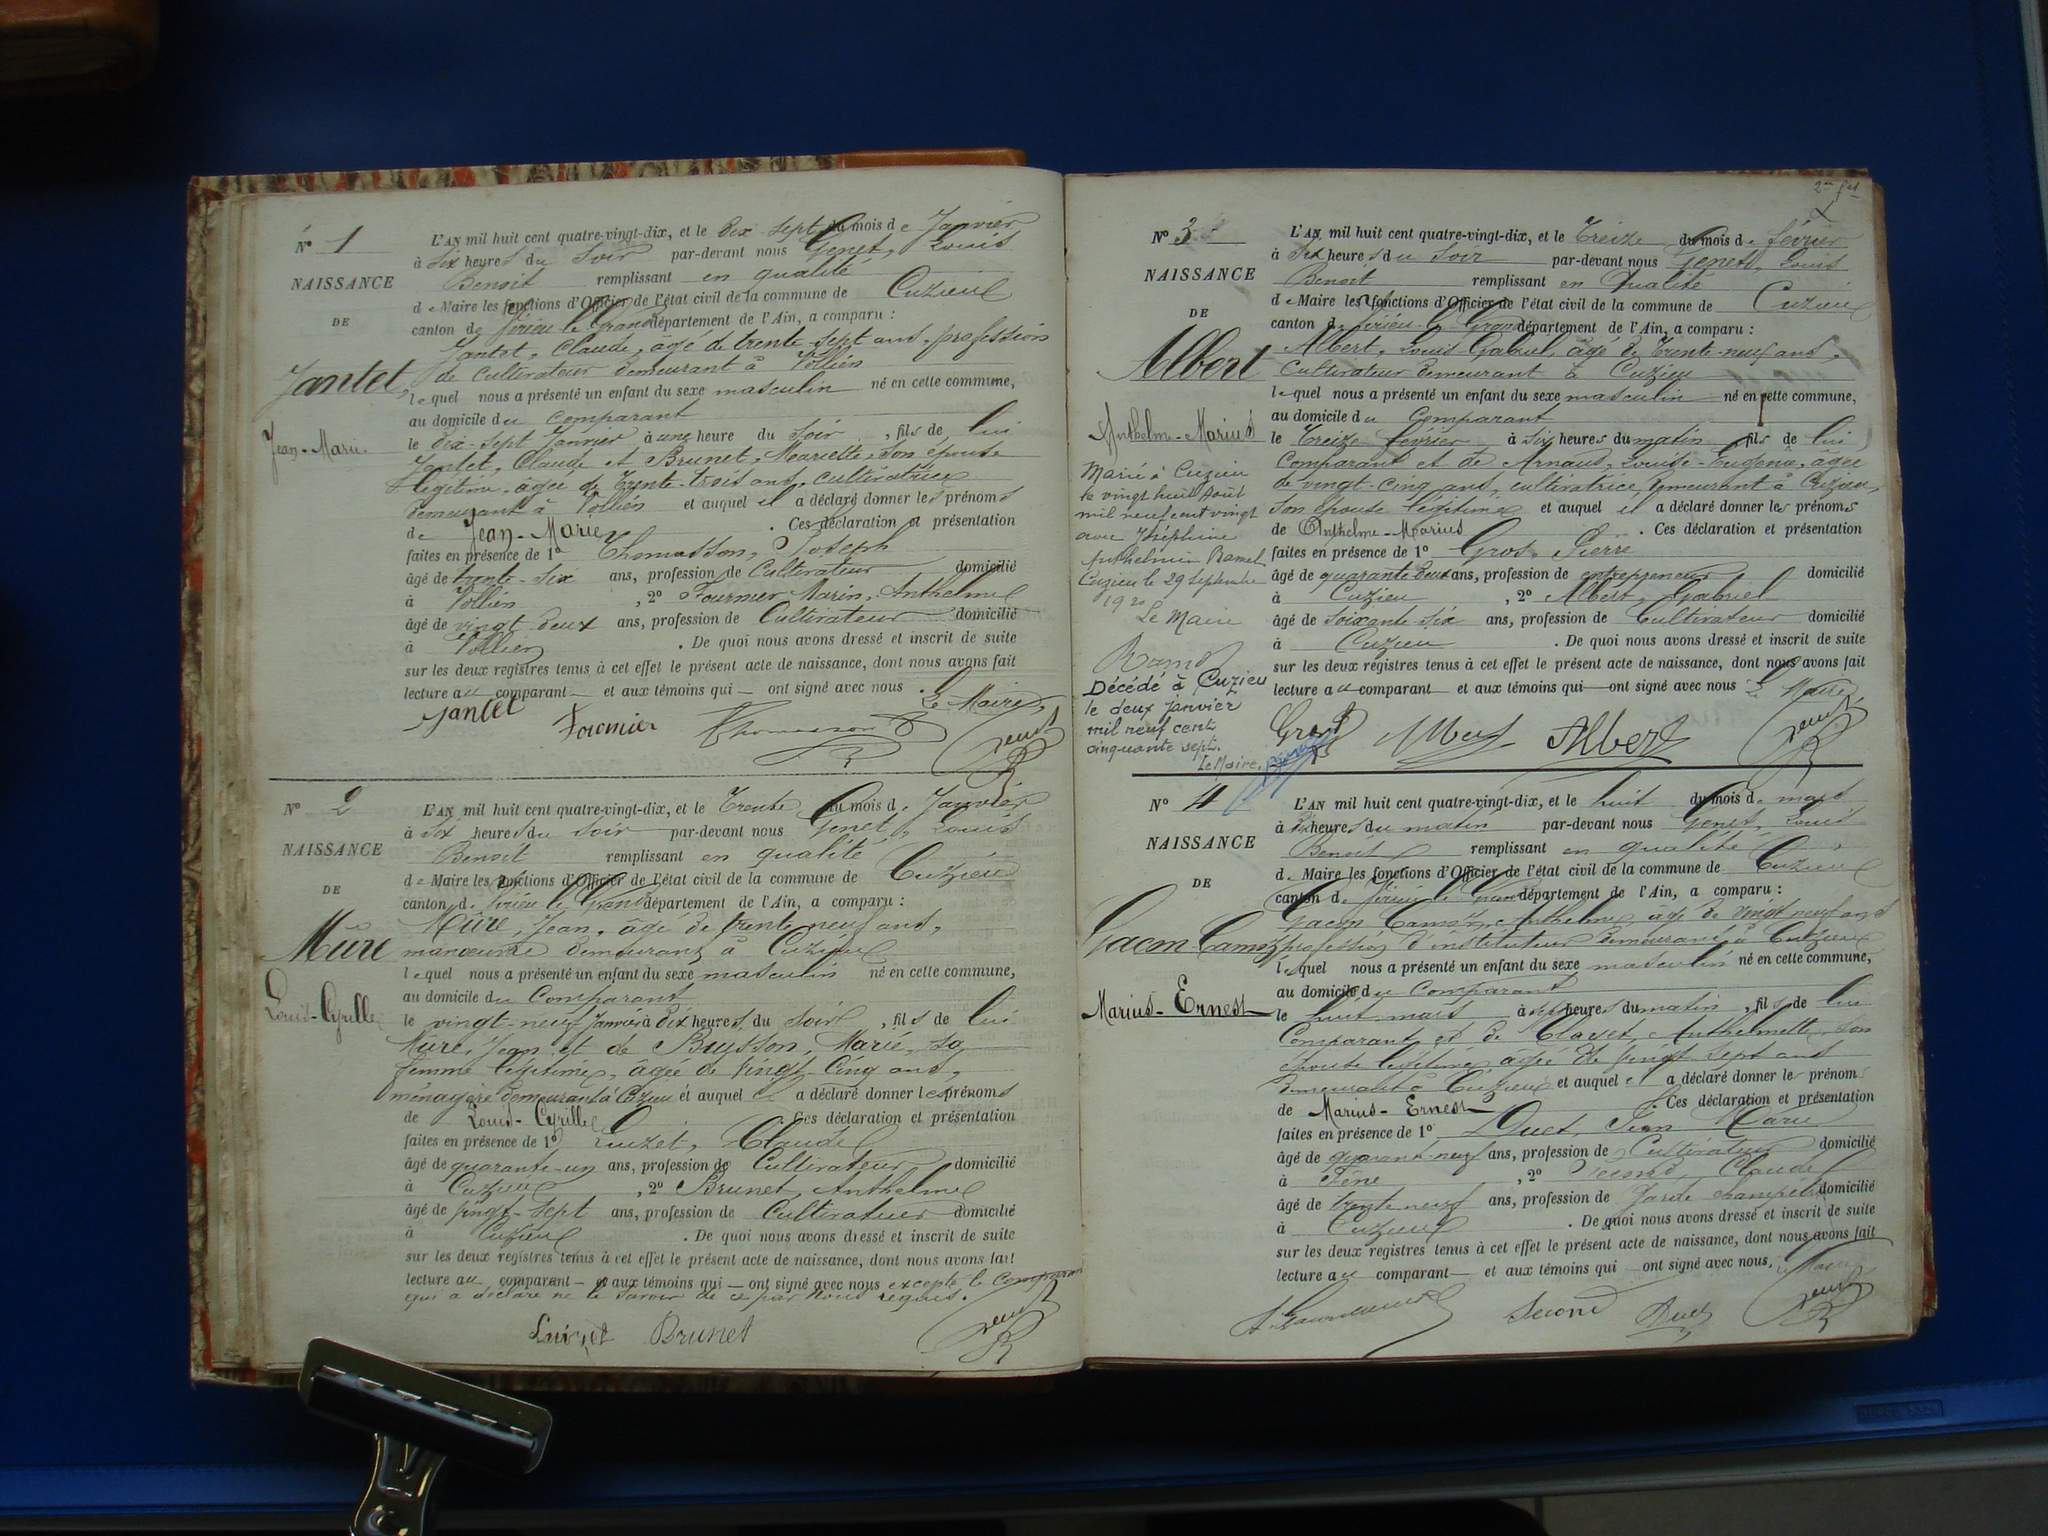 N° 1
NAISSANCE
DE
Jantet,
Jean-Marie
L'AN mil huit cent quatre-vingt-dix, et le dix sept du mois de Janvier
à six heures du soir par-devant nous Genet, Louis
Benoit remplissant en qualité
de Maire les fonctions d'Officier de l'état civil de la commune de Cuzieu
canton de Virieu-le-Grand département de l'Ain, a comparu :
Jantet, Claude, âgé de trente-sept ans, profession
de cultivateur demeurant à Vollien
lequel nous a présenté un enfant du sexe masculin né en cette commune,
au domicile du comparant
le dix-sept Janvier à une heure du soir, fils de lui
Jantet, Claude et Brunet, Mariette, son épouse
légitime, âgée de trente-trois ans, cultivatrice
demeurant à Vollien et auquel il a déclaré donner les prénoms
de Jean-Marie . Ces déclaration et présentation
faites en présence de 1° Thomasson, Joseph
âgé de trente-six ans, profession de Cultivateur domicilié
à Vollien , 2° Fournier Marin, Anthelme
âgé de vingt deux ans, profession de Cultivateur domicilié
à Vollien . De quoi nous avons dressé et inscrit de suite
sur les deux registres tenus à cet effet le présent acte de naissance, dont nous avons fait
lecture au comparant et aux témoins qui ont signé avec nous. Le Maire,
Jantet Fournier Thomasson Genet
N° 2
NAISSANCE
DE
Mûre
Louis-Cyrille
L'AN mil huit cent quatre-vingt-dix, et le Trente du mois de Janvier
à six heures du soir par-devant nous Genet, Louis
Benoit remplissant en qualité
de Maire les fonctions d'Officier de l'état civil de la commune de Cuzieu
canton de Virieu-le-Grand département de l'Ain, a comparu :
Mûre, Jean, âgé de trente neuf ans,
manœuvre demeurant à Cuzieu
lequel nous a présenté un enfant du sexe masculin né en cette commune,
au domicile du Comparant
le vingt-neuf Janvier à dix heures du soir, fils de lui
Mure, Jean et de Buysson, Marie, sa
femme légitime, âgée de vingt-cinq ans,
ménagère demeurant à Cuzieu et auquel il a déclaré donner les prénoms
de Louis-Cyrille Ces déclaration et présentation
faites en présence de 1° Luizet, Claude
âgé de quarante-un ans, profession de Cultivateur domicilié
à Cuzieu , 2° Brunet, Anthelme
âgé de vingt-sept ans, profession de Cultivateur domicilié
à Cuzieu . De quoi nous avons dressé et inscrit de suite
sur les deux registres tenus à cet effet le présent acte de naissance, dont nous avons fait
lecture au comparant et aux témoins qui ont signé avec nous excepté le comparant
qui a déclaré ne le savoir de ce par nous requis.
Luizet Brunet Genet
N° 3
NAISSANCE
DE
Albert
Anthelme-Marius
Marié à Cuzieu
le vingt huit Août
mil neuf cent vingt
avec Joséphine
Anthelmine Ramel
Cuzieu le 29 Septembre
1920
Le Maire
Décédé à Cuzieu
le deux janvier
mil neuf cent
cinquante sept.
Le Maire,
L'AN mil huit cent quatre-vingt-dix, et le Treize du mois de février
à six heures du soir par-devant nous Genet, Louis
Benoit remplissant en qualité
de Maire les fonctions d'Officier de l'état civil de la commune de Cuzieu
canton de Virieu-le-Grand département de l'Ain, a comparu :
Albert, Louis-Gabriel, âgé de Trente-neuf ans,
Cultivateur demeurant à Cuzieu
lequel nous a présenté un enfant du sexe masculin né en cette commune,
au domicile du Comparant
le Treize février à six heures du matin fils de lui
Comparant et de Arnaud, Louise-Eugénie, âgée
de vingt-cinq ans, cultivatrice, demeurant à Cuzieu,
son épouse légitime et auquel il a déclaré donner les prénoms
de Anthelme-Marius . Ces déclaration et présentation
faites en présence de 1° Gros, Pierre
âgé de quarante deux ans, profession de entrepreneur domicilié
à Cuzieu , 2° Albert, Gabriel
âgé de soixante six ans, profession de Cultivateur domicilié
à Cuzieu . De quoi nous avons dressé et inscrit de suite
sur les deux registres tenus à cet effet le présent acte de naissance, dont nous avons fait
lecture au comparant et aux témoins qui ont signé avec nous Le Maire
Gros Albert Albert Genet
N° 4
NAISSANCE
DE
Gacon Camoz
Marius-Ernest
L'AN mil huit cent quatre-vingt-dix, et le huit du mois de mars
à dix heures du matin par-devant nous Genet, Louis
Benoit remplissant en qualité
de Maire les fonctions d'Officier de l'état civil de la commune de Cuzieu
canton de Virieu-le-Grand département de l'Ain, a comparu :
Gacon Camoz, Anthelme, âgé de vingt neuf ans
profession d'instituteur demeurant à Cuzieu
lequel nous a présenté un enfant du sexe masculin né en cette commune,
au domicile du Comparant
le huit mars à heures du matin, fils de lui
Comparant et de Clayet, Anthelmette, son
épouse légitime, âgée de vingt sept ans
demeurant à Cuzieu et auquel il a déclaré donner les prénoms
de Marius-Ernest . Ces déclaration et présentation
faites en présence de 1° Duet, Jean Marie
âgé de quarante-neuf ans, profession de Cultivateur domicilié
à , 2° Second, Claude
âgé de trente neuf ans, profession de Garde champêtre domicilié
à Cuzieu . De quoi nous avons dressé et inscrit de suite
sur les deux registres tenus à cet effet le présent acte de naissance, dont nous avons fait
lecture au comparant et aux témoins qui ont signé avec nous, Le Maire
Second Duet Genet